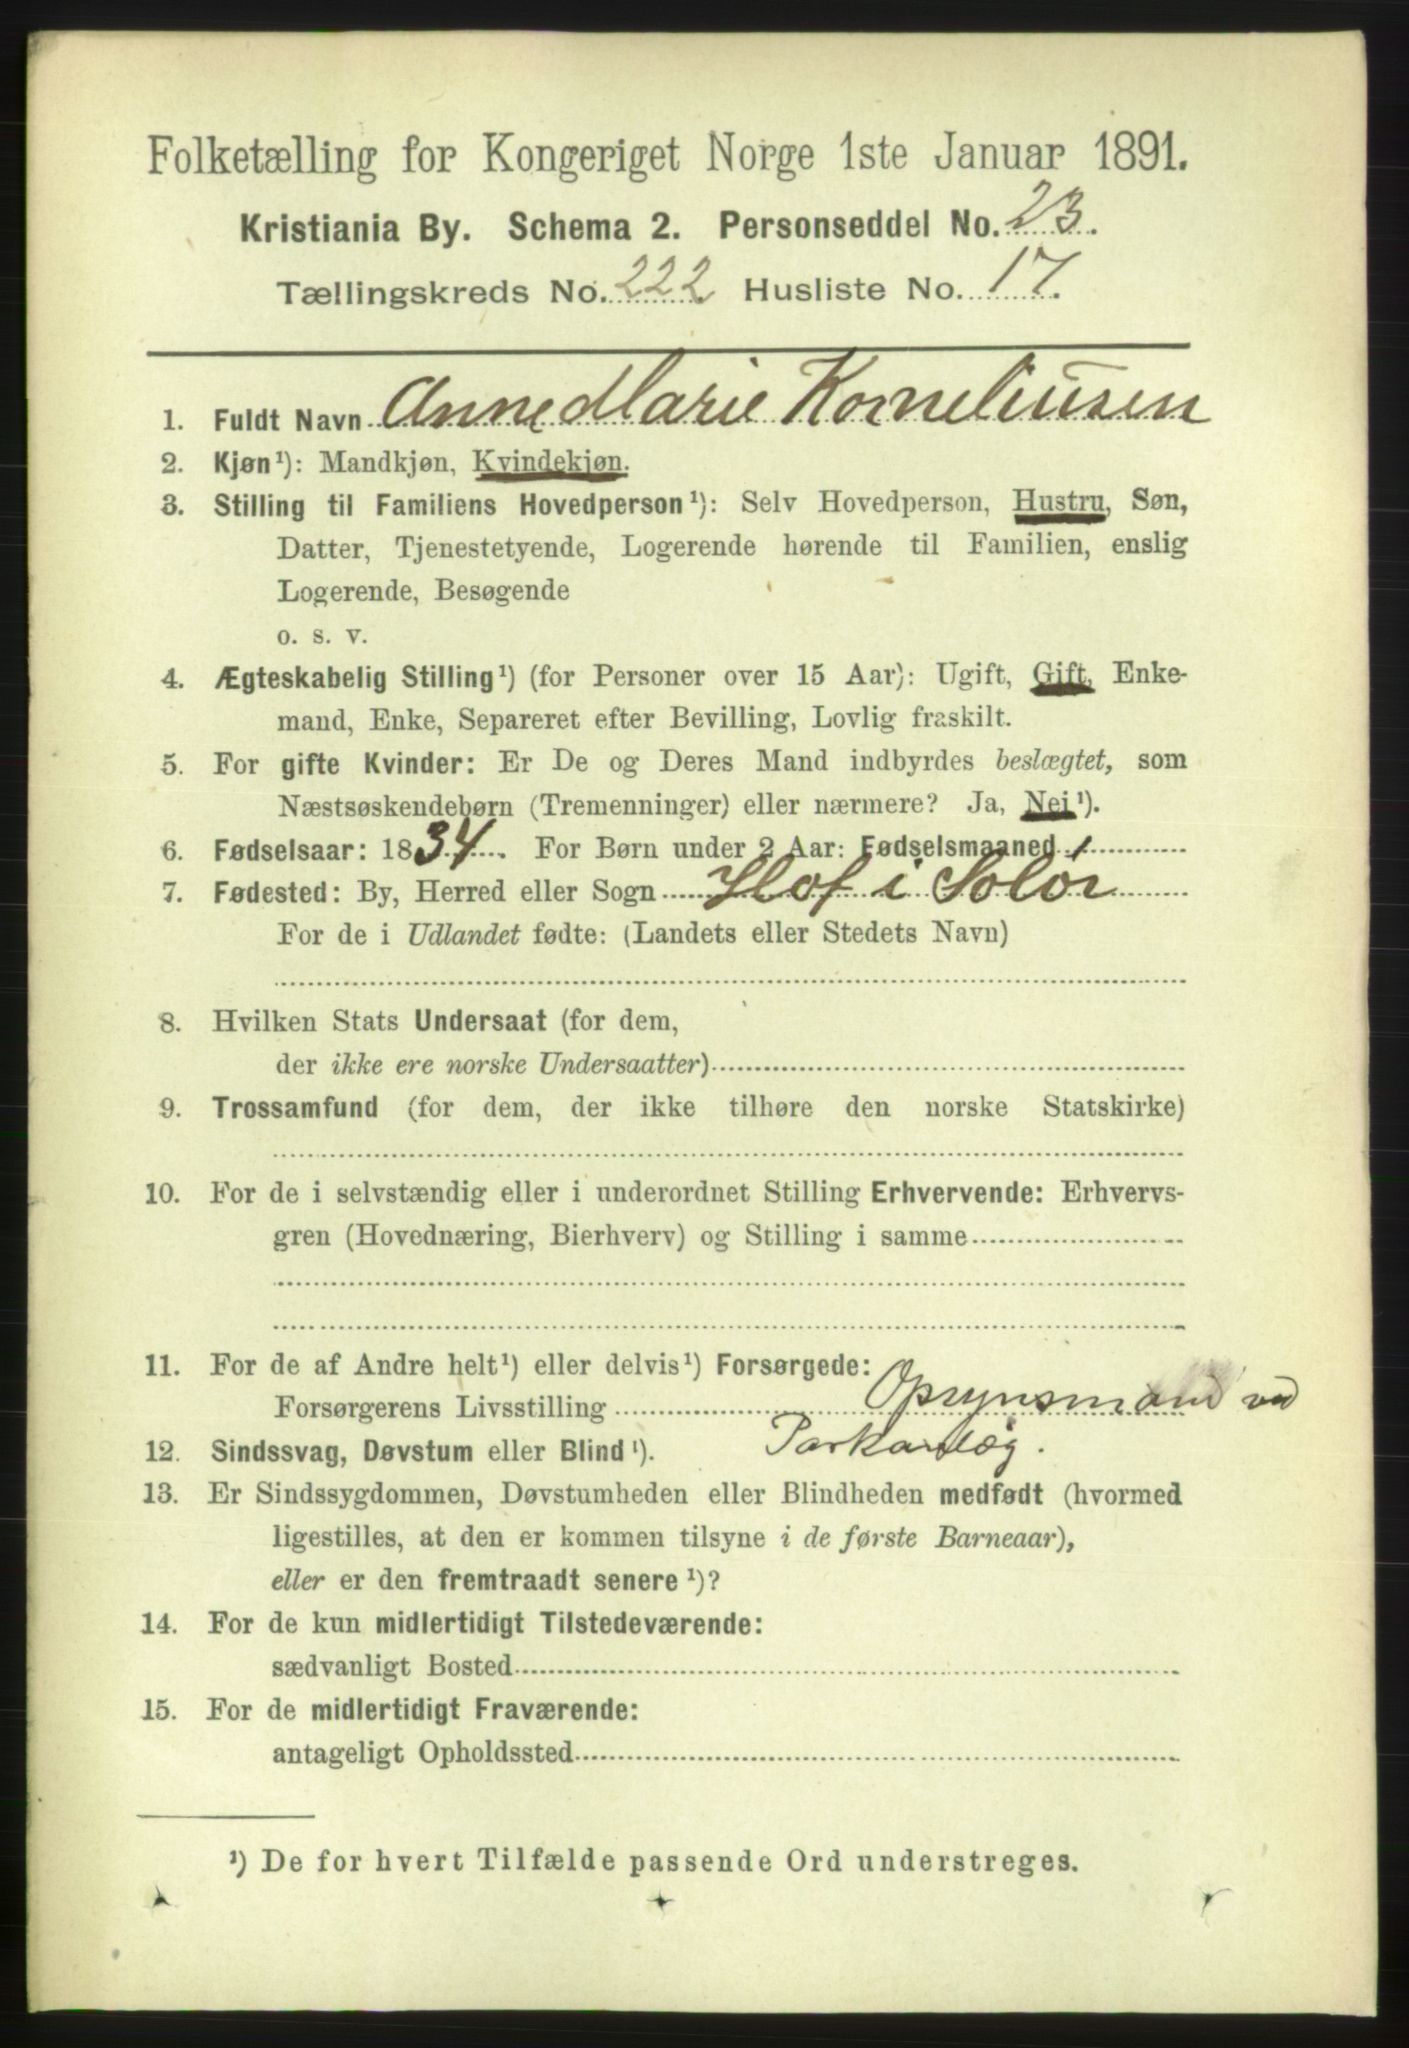 Folketælling for Kongeriget Norge 1ste Januar 1891.
Kristiania By. Schema 2. Personseddel No. 23.
Tællingskreds No. 222. Husliste No. 17.
1. Fuldt Navn Anne Marie Korneliusen
2. Kjøn¹): Mandkjøn, Kvindekjøn.
3. Stilling til Familiens Hovedperson¹): Selv Hovedperson, Hustru, Søn,
Datter, Tjenestetyende, Logerende hørende til Familien, enslig
Logerende, Besøgende
o. s. v.
4. Ægteskabelig Stilling¹) (for Personer over 15 Aar): Ugift, Gift, Enke-
mand, Enke, Separeret efter Bevilling, Lovlig fraskilt.
5. For gifte Kvinder: Er De og Deres Mand indbyrdes beslægtet, som
Næstsøskendebørn (Tremenninger) eller nærmere? Ja, Nei¹).
6. Fødselsaar: 1834. For Børn under 2 Aar: Fødselsmaaned
7. Fødested: By, Herred eller Sogn Hof i Solór
For de i Udlandet fødte: (Landets eller Stedets Navn)
8. Hvilken Stats Undersaat (for dem,
der ikke ere norske Undersaatter)
9. Trossamfund (for dem, der ikke tilhøre den norske Statskirke)
10. For de i selvstændig eller i underordnet Stilling Erhvervende: Erhvervs-
gren (Hovednæring, Bierhverv) og Stilling i samme
11. For de af Andre helt¹) eller delvis¹) Forsørgede:
Forsørgerens Livsstilling Opsynsmand ved
Parkanlæg.
12. Sindssvag, Døvstum eller Blind¹).
13. Er Sindssygdommen, Døvstumheden eller Blindheden medfødt (hvormed
ligestilles, at den er kommen tilsyne i de første Barneaar),
eller er den fremtraadt senere¹)?
14. For de kun midlertidigt Tilstedeværende:
sædvanligt Bosted
15. For de midlertidigt Fraværende:
antageligt Opholdssted
¹) De for hvert Tilfælde passende Ord understreges.